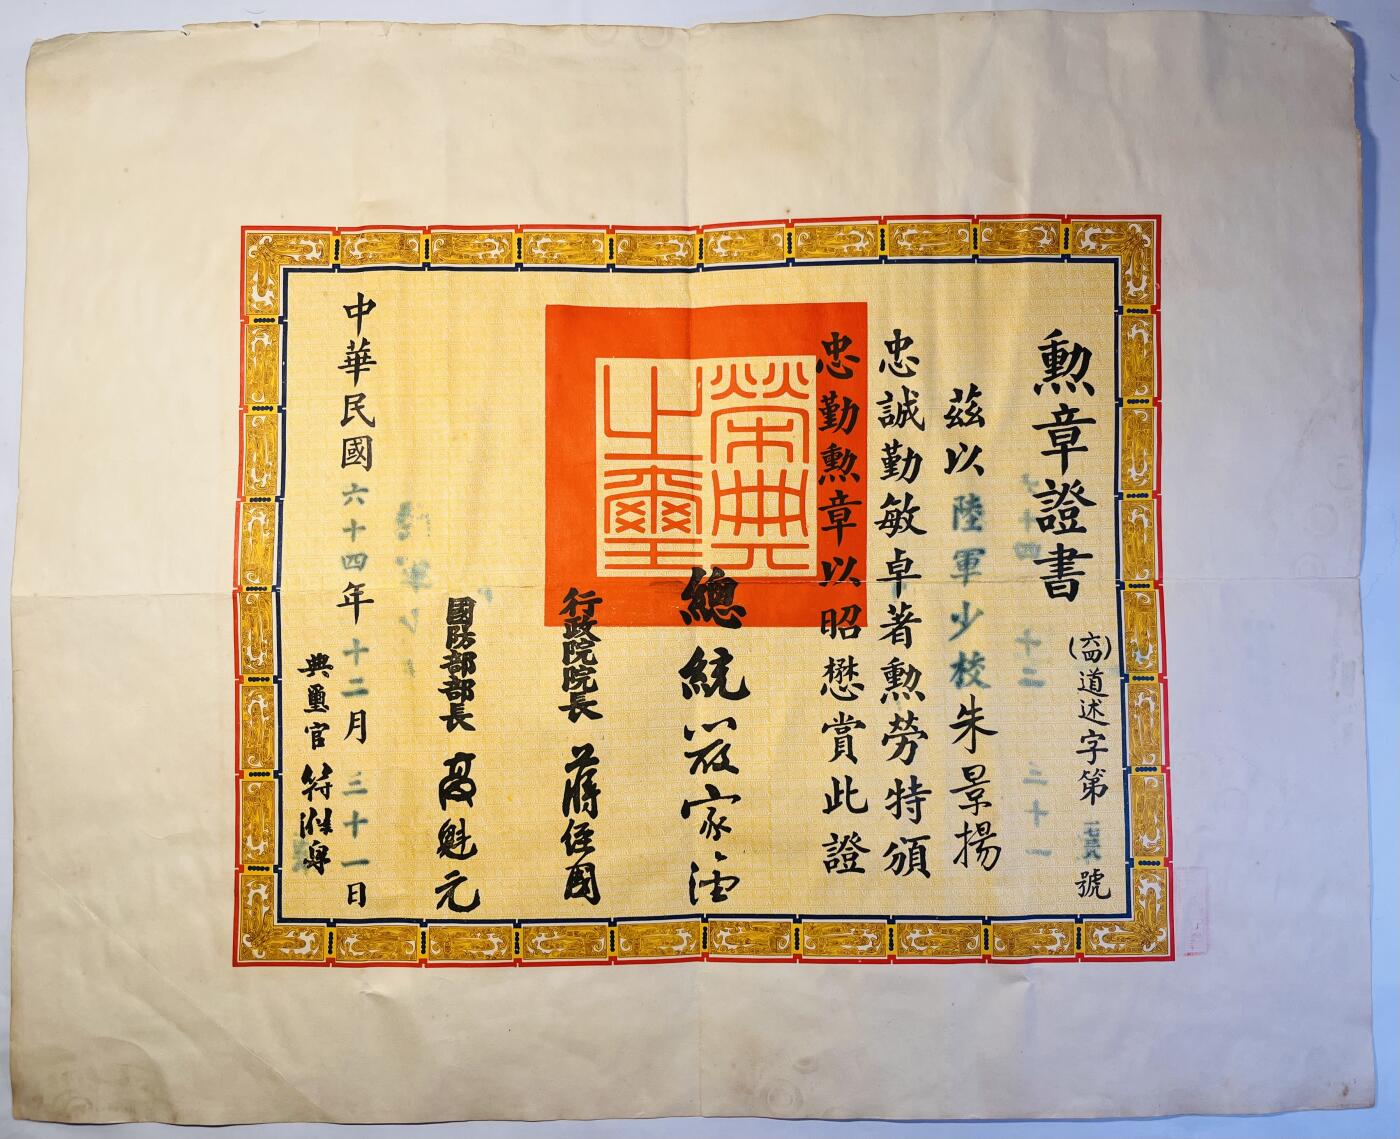 勲章證書
(六四)道述字第號
茲以陸軍少校朱景揚
忠誠勤敏卓著勲勞特頒
忠勤勲章以昭懋賞此證
榮典之璽
總統嚴家淦
行政院院長蔣經國
國防部部長高魁元
中華民國六十四年十二月三十一日
典璽官